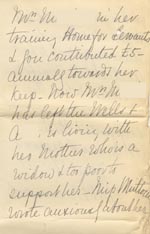 Mrs M in her
training Home for servants
& you contributed £5-
annually towards her
keep. Now Mrs M
has left the Wells &
A. is living with
her Mother who is a
widow & too poor to
support her - Miss
wrote anxious about her